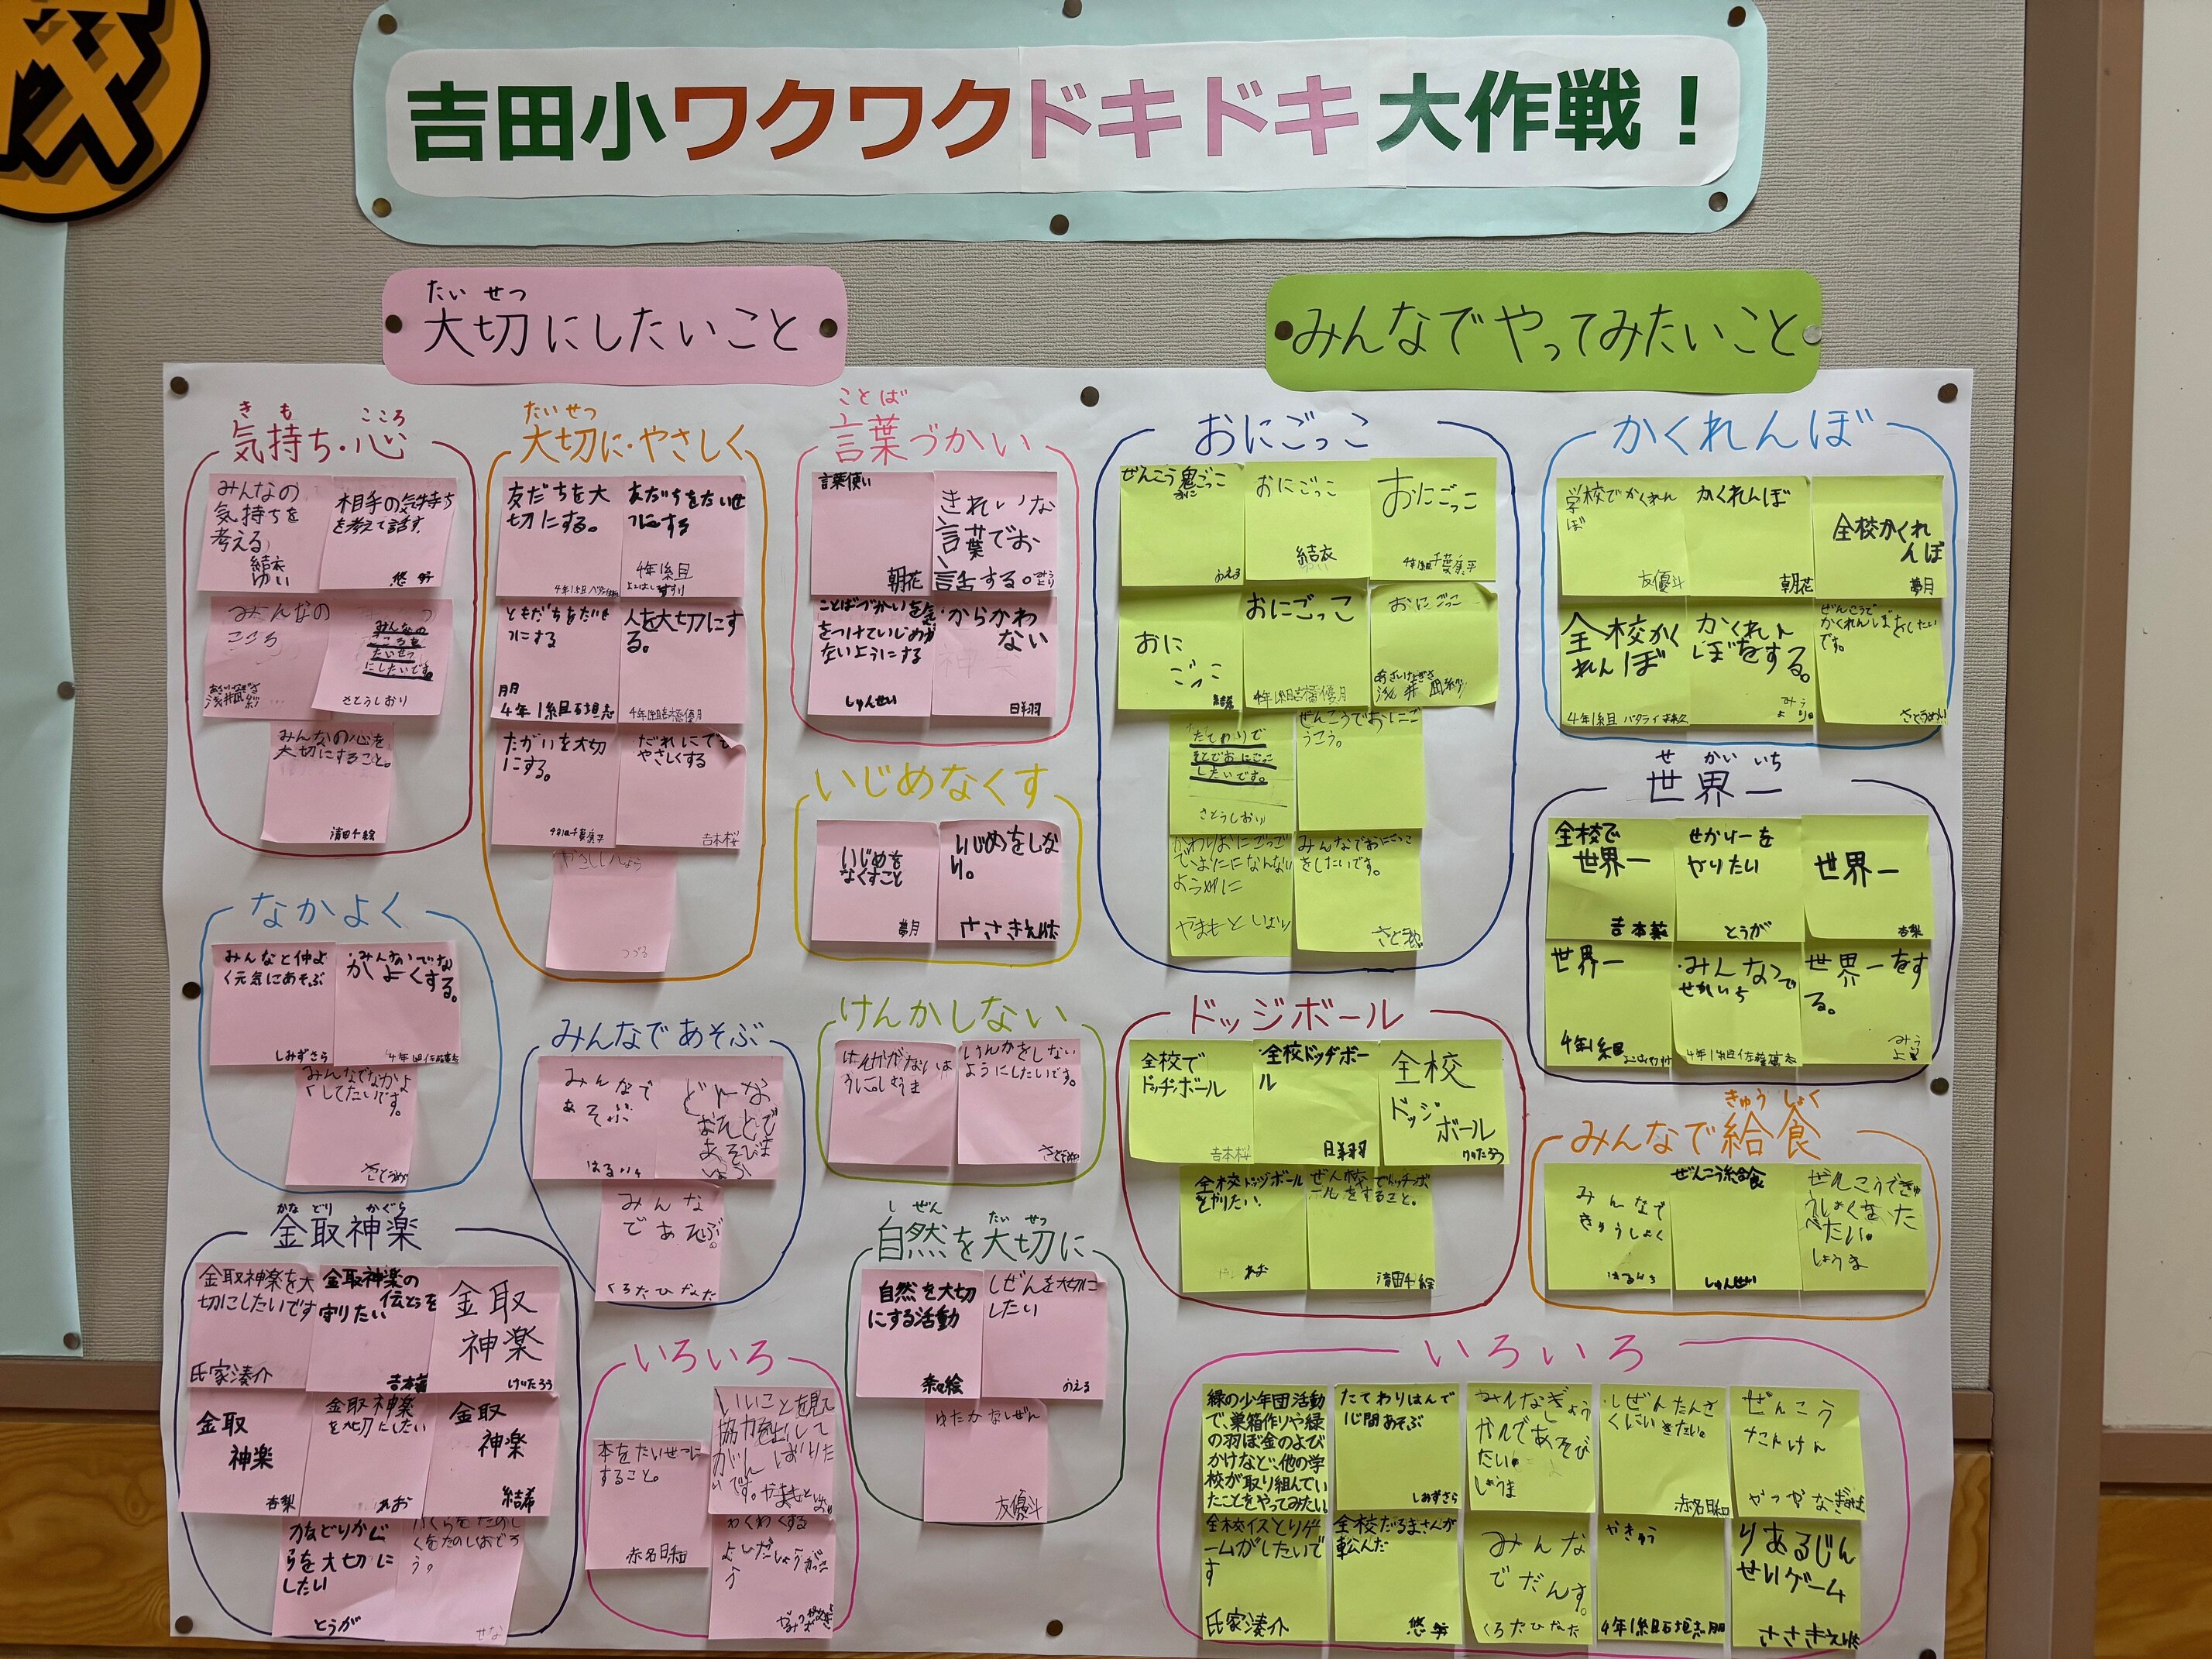 吉田小ワクワクドキドキ大作戦！
たいせつ
大切にしたいこと
きも こころ
気持ち・心
みんなの
気持ちを
考える
結衣
ゆい
相手の気持ち
を考えて話す。
みんなの
こころ
みんなの
こころを
たいせつ
にしたいです。
さとうしおり
みんなの心を
大切にすること。
清田千絵
たいせつ
大切に・やさしく
友だちを大
切にする。
友だちをたいせ
つにする
4年1組目
ともだちをたいせ
つにする
4年1組目石垣志
朋
人を大切にす
る。
4年1組目吉橋優月
たがいを大切
にする。
だれにでも
やさしくする
吉本桜
つづる
ことば
言葉づかい
言葉使い
朝花
きれいな
言葉でお
話する。
ことばづかいを気
をつけていじめが
ないようにする
しゅんせい
・からかわ
ない
日羽
いじめなくす
いじめを
なくすこと
夢月
いじめをしな
い。
ささきえいた
なかよく
みんなと仲よ
く元気にあそぶ
しみずさら
・みんなでな
かよくする。
みんなでなかよ
くしてたいです。
みんなであそぶ
みんなで
あそぶ
みんな
であそぶ。
くろたひなた
けんかしない
けんかをしない
ようにしたいです。
しぜん たいせつ
自然を大切に
自然を大切
にする活動
奈々絵
しぜんを大切に
したい
おえる
ゆたかなしぜん
友優斗
かなどり かぐら
金取神楽
金取神楽を大
切にしたいです
氏家湊介
金取神楽の
伝とうを
守りたい
金取
神楽
けいたろう
金取
神楽
杏梨
金取神楽
を大切にしたい
れお
金取
神楽
結希
かなどりかぐ
らを大切に
したい
とうが
せな
いろいろ
本をたいせつに
すること。
赤名日和
いいことを見て
協力を出して
がんばりた
いです。
わくわくする
よしだしょうがっこ
う
みんなでやってみたいこと
おにごっこ
ぜんこう鬼ごっこ
おに
おえる
おにごっこ
結衣
おにごっこ
おに
ごっこ
おにごっこ
4年1組目吉橋優月
おにごっこ
たてわりで
そとでおにごっこ
したいです。
さとうしおり
ぜんこうでおにご
うこう。
やまもとしおり
みんなでおにごっこ
をしたいです。
かくれんぼ
学校でかくれん
ぼ
友優斗
かくれんぼ
朝花
全校かくれ
んぼ
夢月
全校かく
れんぼ
かくれん
ぼをする。
ぜんこうで
かくれんぼをしたい
です。
せ かい いち
世界一
全校で
世界一
せかいーを
やりたい
とうが
世界一
杏梨
世界一
4年1組目
・みんなで
せかいち
世界一をす
る。
ドッジボール
全校で
ドッチボール
吉本桜
全校ドッヂボー
ル
日羽
全校
ドッジ
ボール
けいたろう
全校ドッヂボール
をやりたい。
れお
ぜん校でドッチボ
ールをすること。
清田千絵
きゅうしょく
みんなで給食
みんなで
きゅうしょく
ぜんこう給食
しゅんせい
ぜんこうできゅ
うしょくをた
べたい。
しょうま
いろいろ
緑の少年団活動
で、巣箱作りや緑
の羽ぼ金のよび
かけなど、他の学
校が取り組んでい
たことをやってみたい。
たてわりはんで
1じ間あそぶ
しみずさら
・しぜんたんさ
くにいきたい。
赤名日和
ぜんこう
たんけん
全校イスとりゲ
ームがしたいで
す
氏家湊介
全校だるまさんが
転んだ
みんな
でだんす。
くろたひなた
やきゅう
4年1組目石垣志朋
りあるじん
せいゲーム
ささきえいた